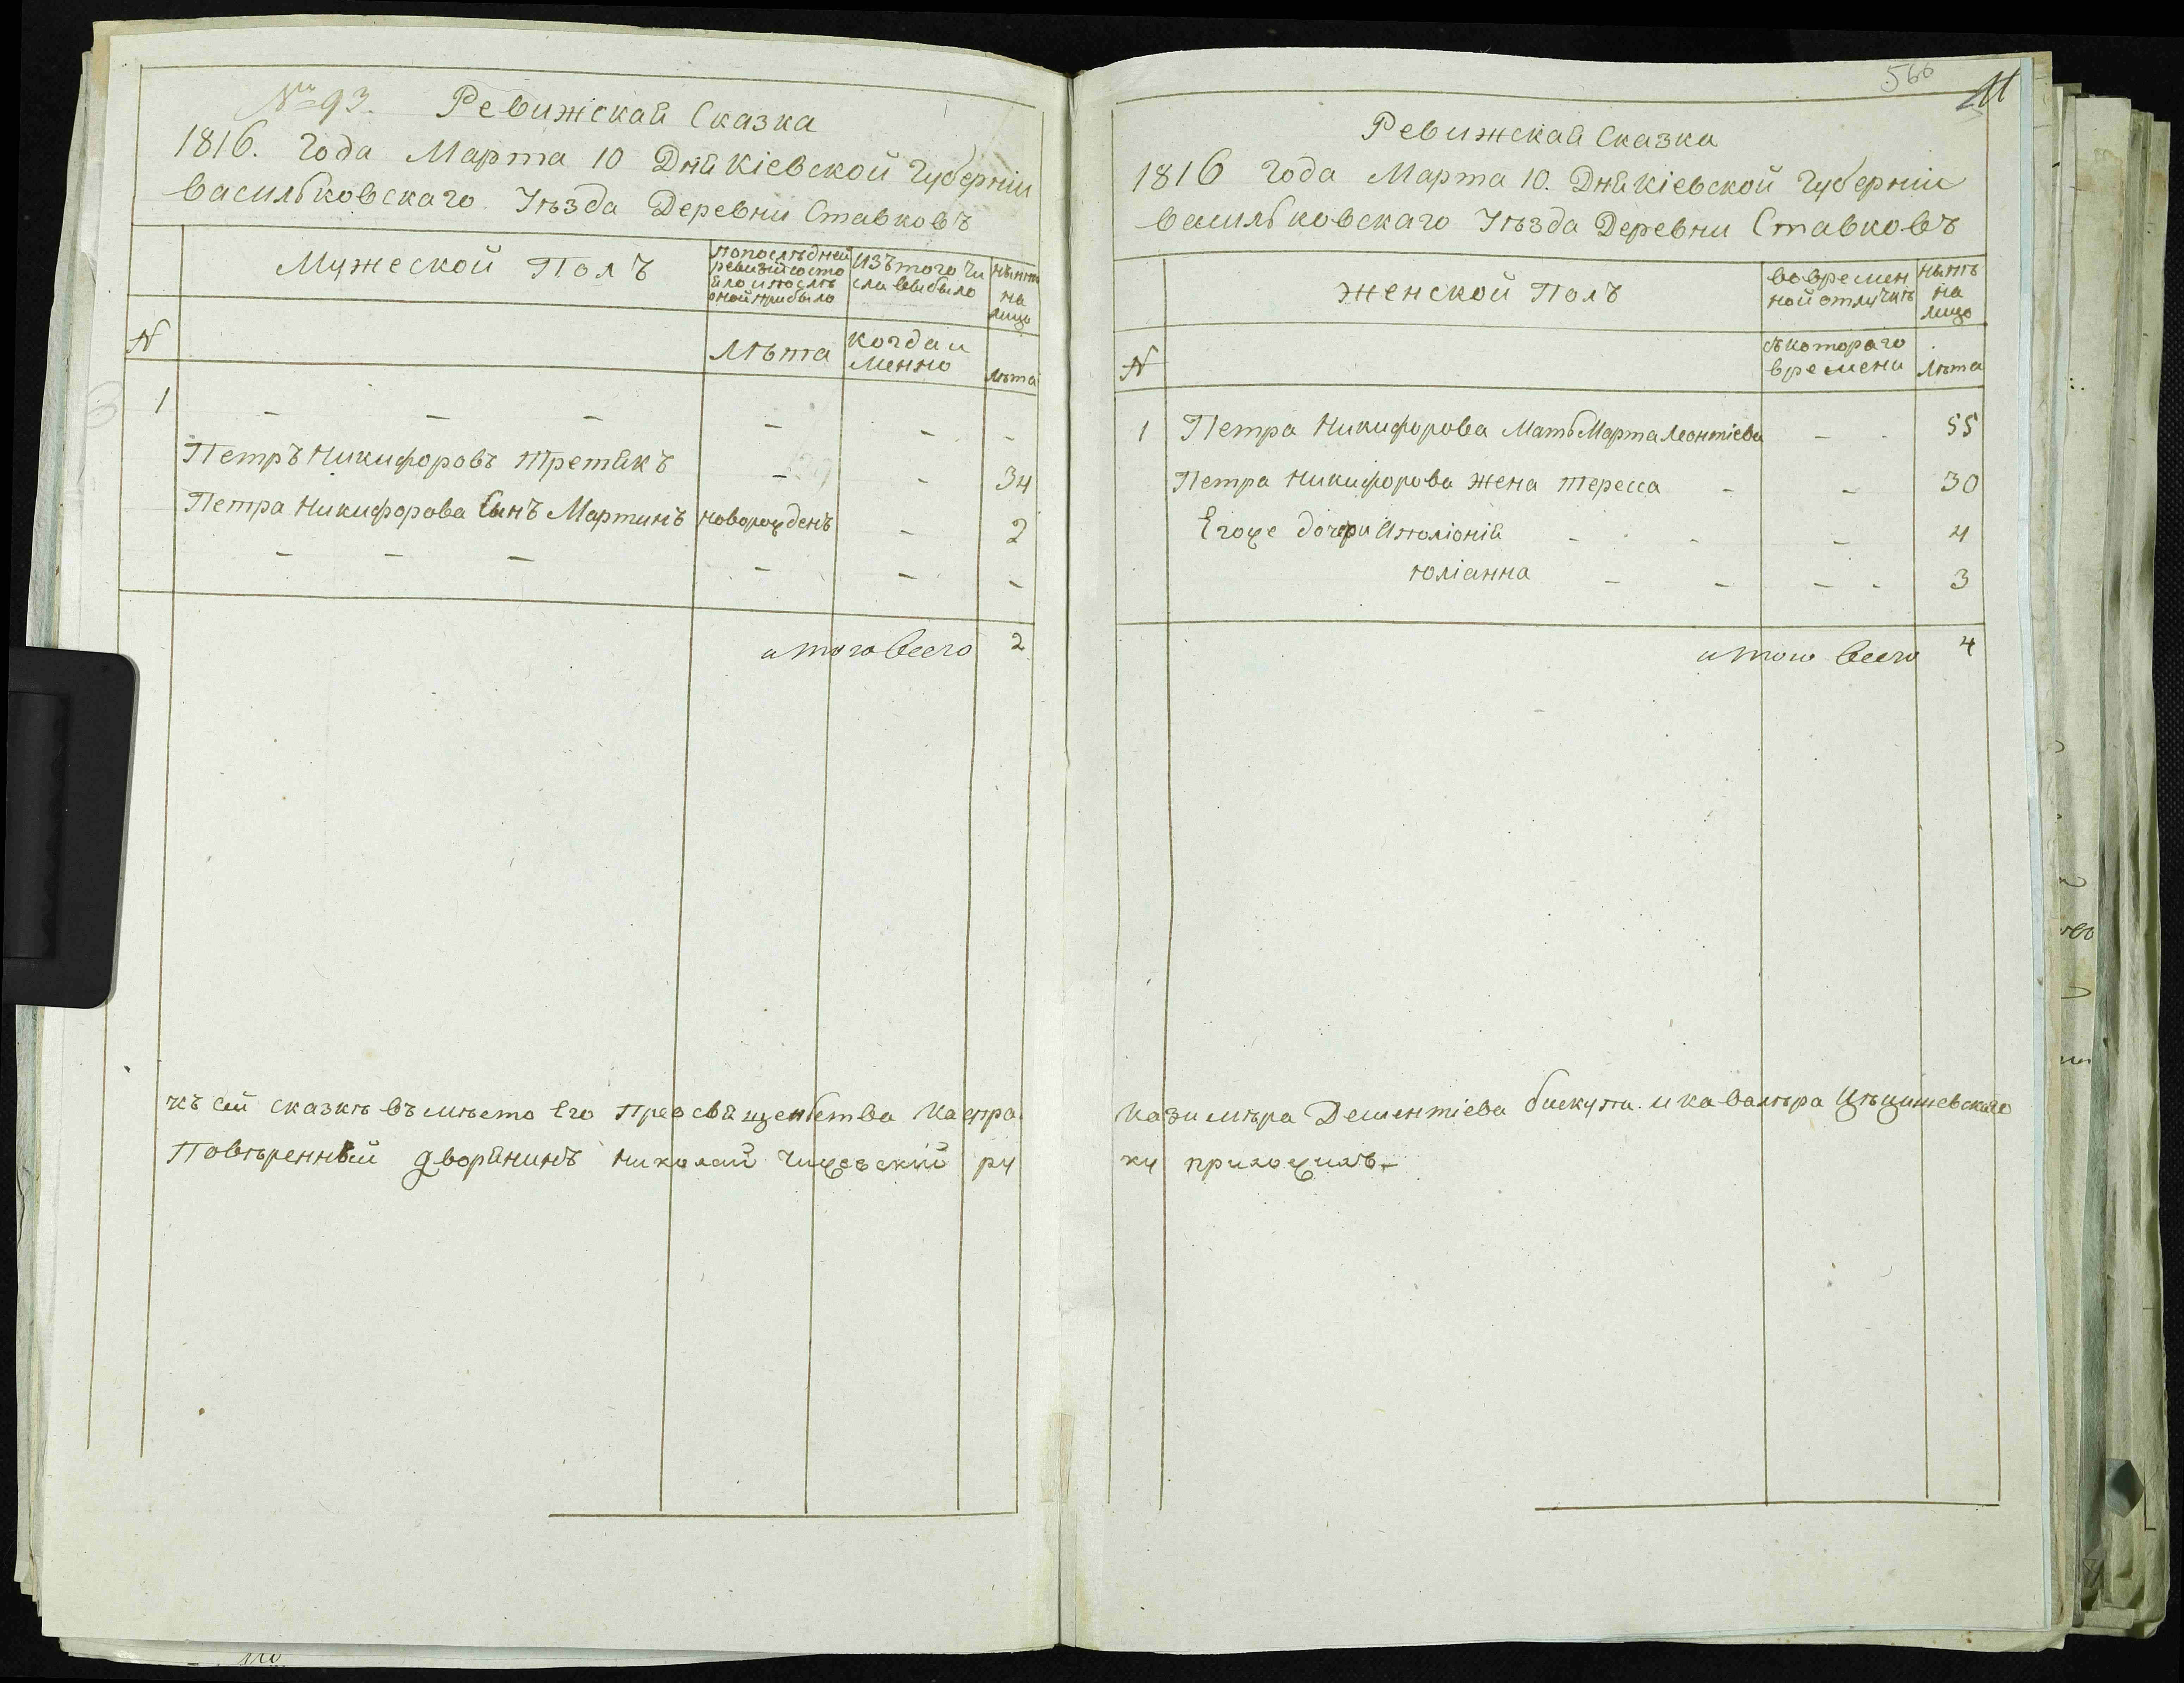 № 93. Ревижская Сказка
1816. Года Марта 10 Дня Кіевской Губерніи
Васильковскаго Уѣзда Деревни Ставковъ
Мужеской Полъ
По последней ревизіи состояло и после оной прибыло
Изъ того числа выбыло
Нынѣ на лицо
N
Лѣта
Когда именно
Лѣта
1 — — — — — —
Петръ Никифоровъ Третякъ — — 34
Петра Никифорова Сынъ Мартинъ новорожденъ — 2
— — — — — —
итого Всего 2
къ сей сказкѣ въ мѣсто Его Преосвященства
Повѣренный дворянинъ Николай ру
566
Ревижская Сказка
1816 Года Марта 10. Дня Кіевской Губерніи
Васильковскаго Уѣзда Деревни Ставковъ
Женской Полъ
Во временной отлучкѣ
Нынѣ на лицо
N
Съ котораго времени
Лѣта
1 Петра Никифорова Мать Марта Леонтіева — 55
Петра Никифорова Жена Тересса — — 30
Егоже дочери Аполіонія — — — 4
Юліанна — — — — 3
итого Всего 4
Казимѣра Дементіева бискупа и кавалѣра Цѣцишевскаго
ку приложилъ —